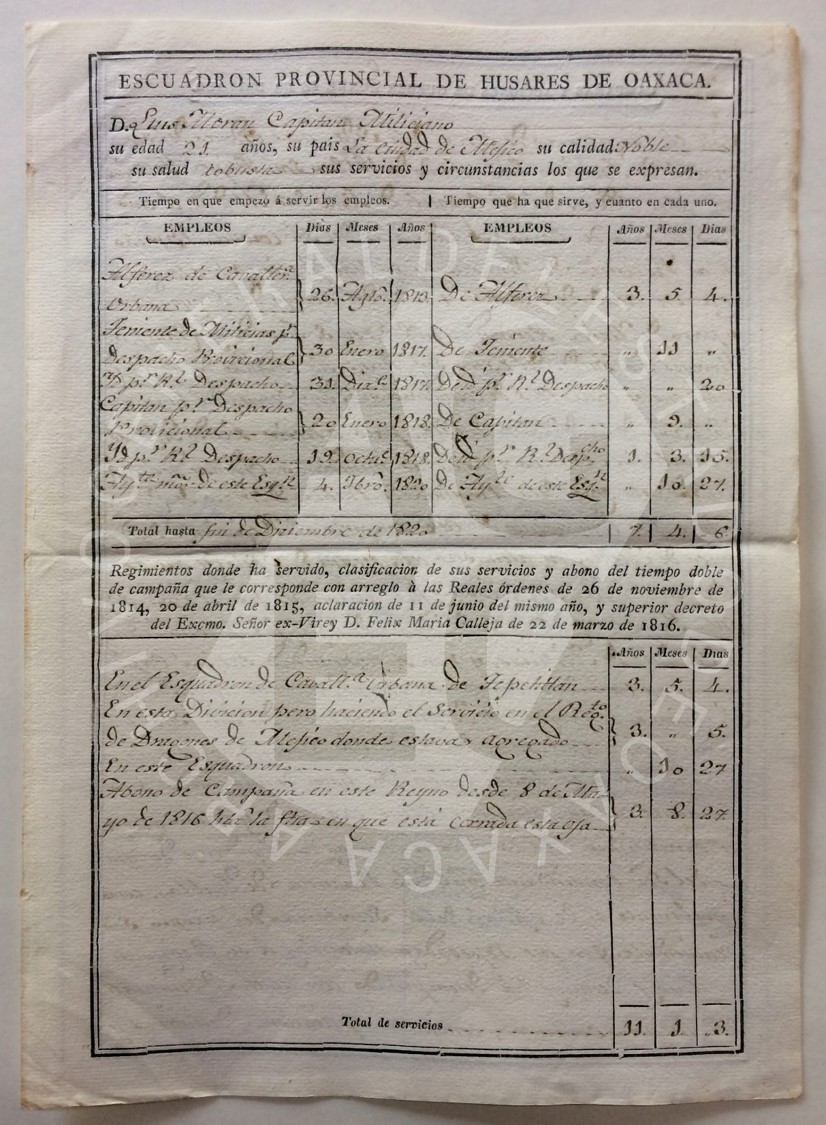 ESCUADRON PROVINCIAL DE HUSARES DE OAXACA.
D. Luis Moran Capitan Miliciano
su edad 21 años, su pais La Ciudad de Mejico su calidad: Noble
su salud robusta sus servicios y circunstancias los que se expresan.
Tiempo en que empezó á servir los empleos. Tiempo que ha que sirve, y cuanto en cada uno.
EMPLEOS Dias Meses Años EMPLEOS Años Meses Dias
Alferez de Cavalle.ª
Urbana 26. Agto. 1813. De Alferez 3. 5. 4.
Teniente de Milicias p.r
Despacho Provicional 30 Enero 1817. De Teniente " 11 "
Yd p.r R.l Despacho 31. 1817. De id p.r R.l Despacho " " 20
Capitan p.r Despacho
Provicional 20 Enero 1818. De Capitan " 9. "
Yd p.r R.l Despacho 19. Octe. 1818. De id p.r R.l Desp.cho 1. 3. 15.
Ayte. mor. de este Esqn. 4. 1820 De Ayte. de este " 10 27.
Total hasta fin de Diciembre de 1820 7. 4. 6.
Regimientos donde ha servido, clasificacion de sus servicios y abono del tiempo doble
de campaña que le corresponde con arreglo à las Reales órdenes de 26 de noviembre de
1814, 20 de abril de 1815, aclaracion de 11 de junio del mismo año, y superior decreto
del Excmo. Señor ex-Virey D. Felix Maria Calleja de 22 de marzo de 1816.
Años Meses Dias
En el Esquadron de Cavall.ª Urbana de Tepetitlan 3. 5. 4.
En esta Divicion pero haciendo el Servicio en el Regto.
de Dragones de Mejico donde estava agregado 3. " 5.
En este Esquadron " 10 27
Abono de Campaña en este Reyno desde 8 de Ma-
yo de 1816 hta. la fha en que está cerrada esta oja 3. 8. 27.
Total de servicios 11. 1. 3.